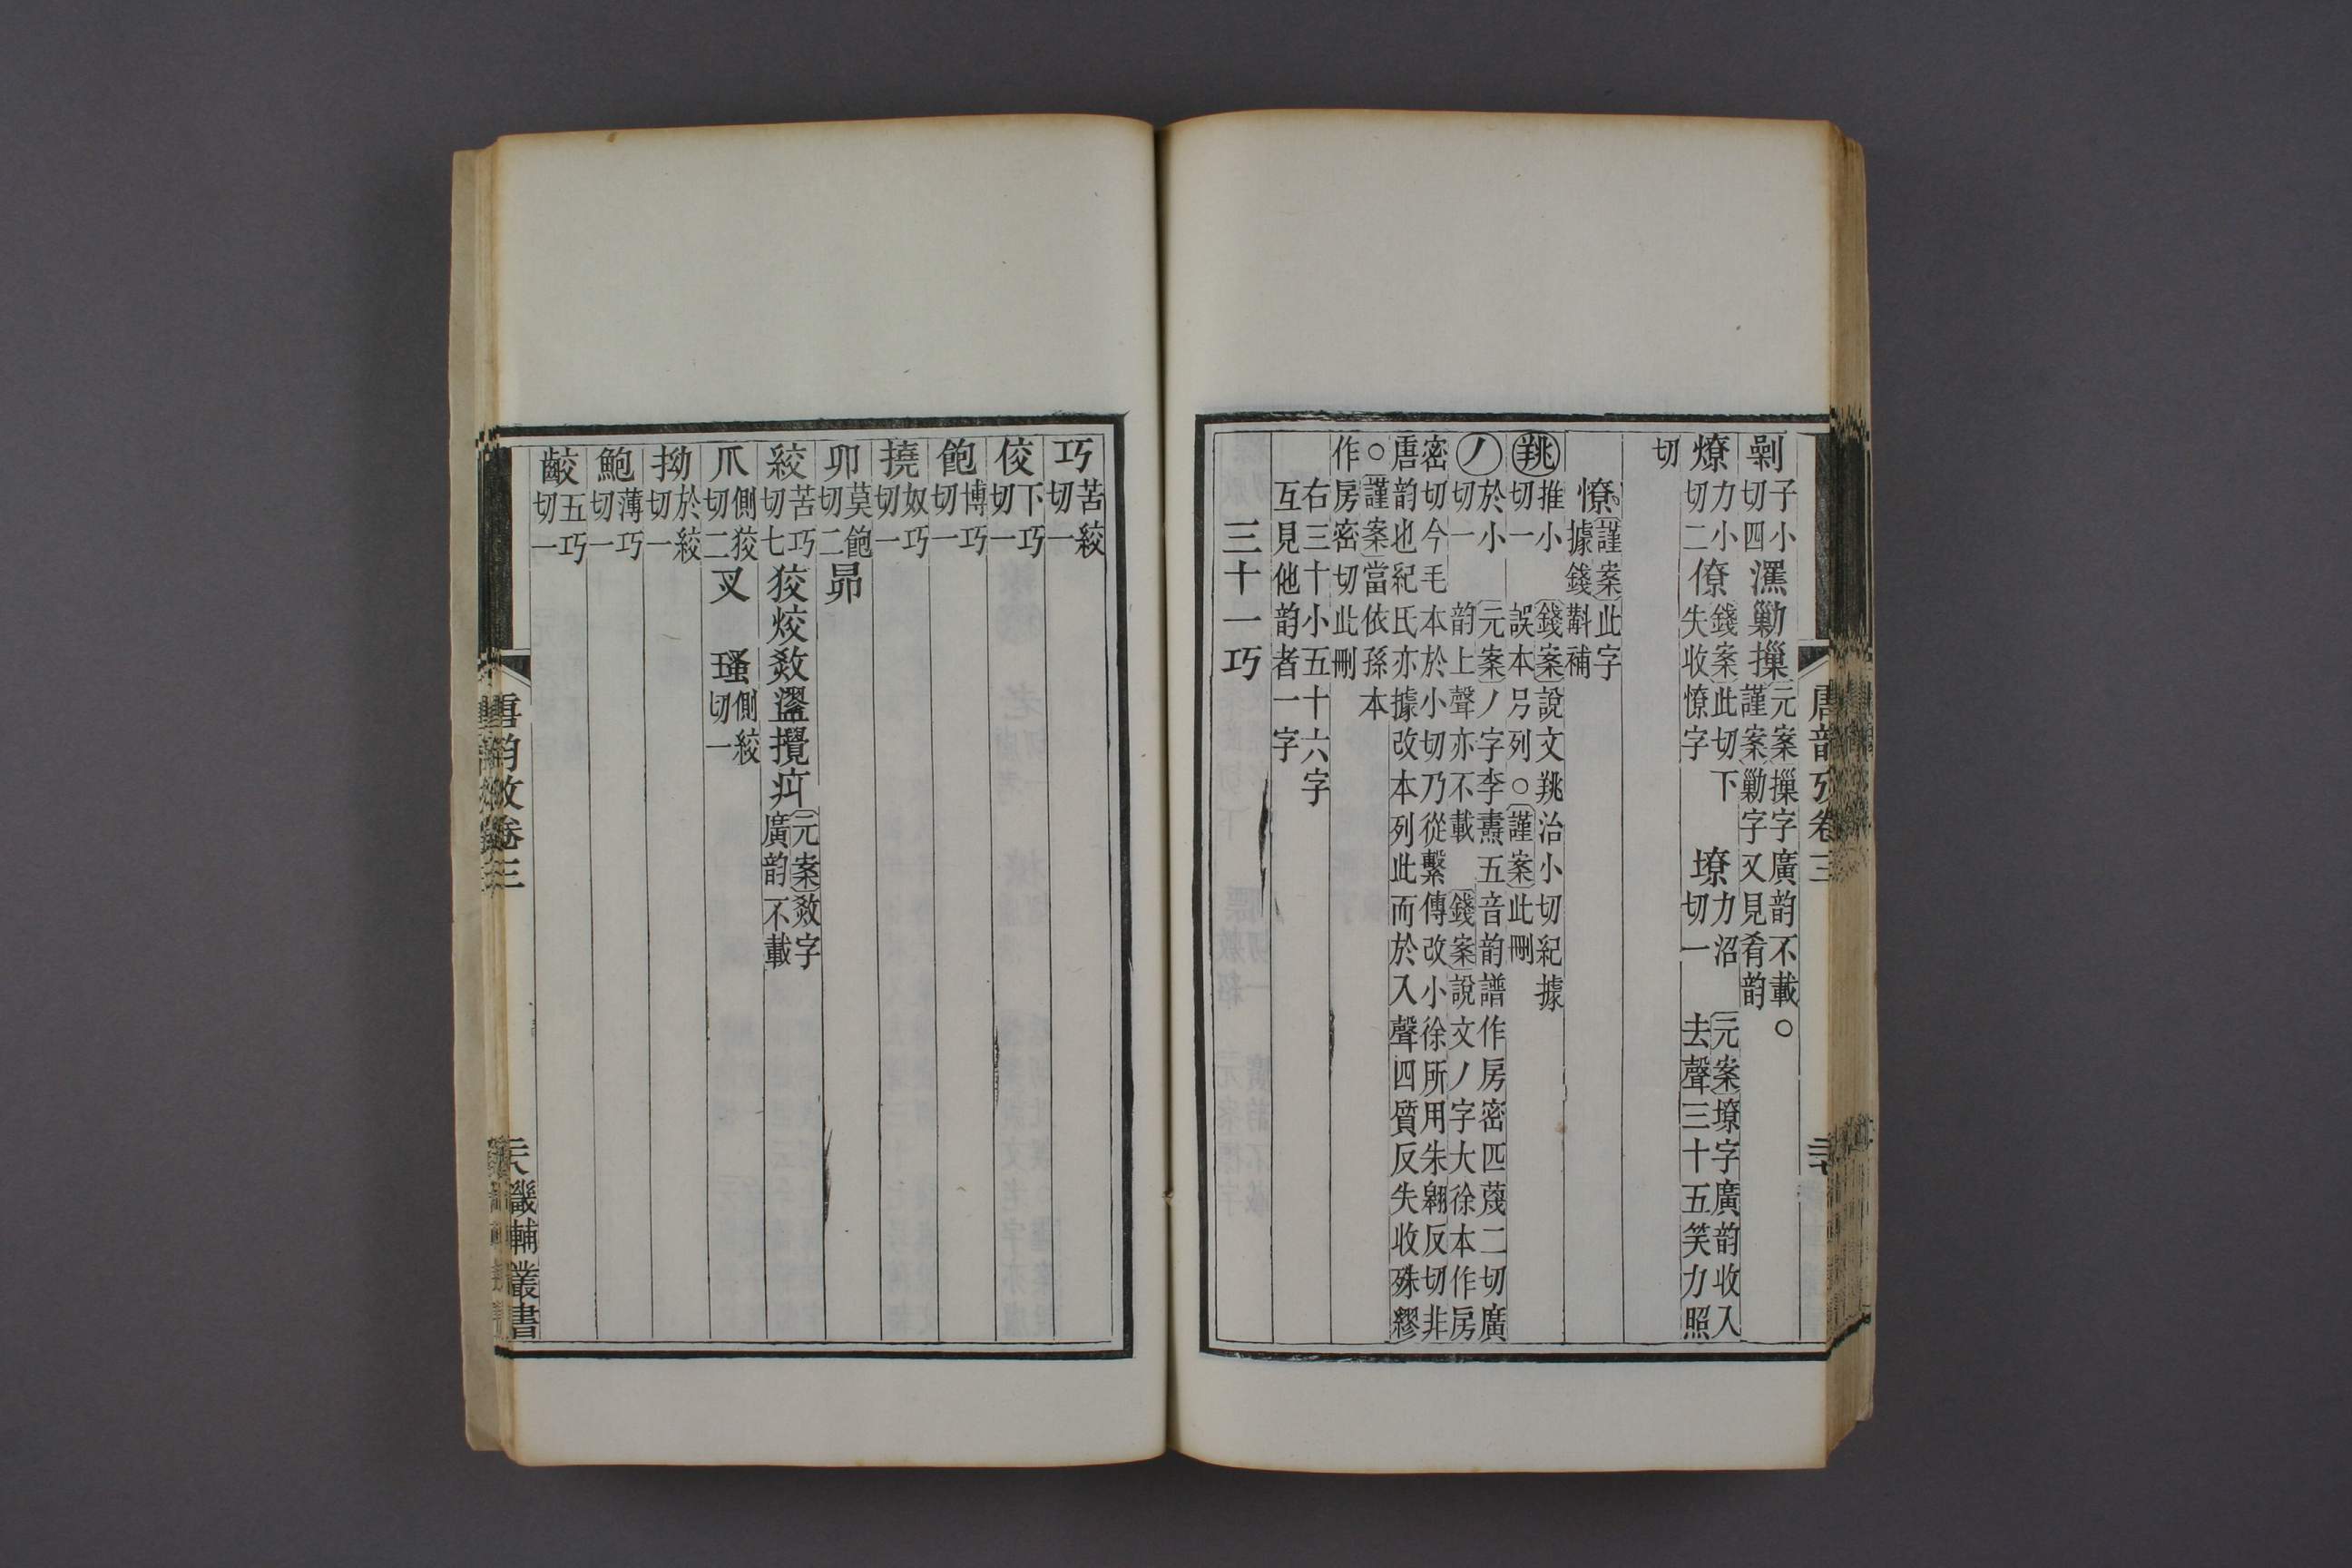 剿子小切四㶞勦摷元案摷字廣韵不載○謹案勦字又見肴韵
燎力小切二僚錢案此切下失收憭字 㙩力沼切一 元案㙩字廣韵收入去聲三十五笑力照
切
憭謹案此字據錢斠補
㸠推小切一 錢案說文㸠治小切紀據誤本另列○謹案此刪
丿於小切一 元案丿字李燾五音韵譜作房密匹蔑二切廣韵上聲亦不載 錢案說文丿字大徐本作房
密切今毛本於小切乃從繫傳改小徐所用朱翱反切非唐韵也紀氏亦據改本列此而於入聲四質反失收殊繆
○謹案當依孫本作房密切此刪
右三十小五十六字互見他韵者一字
三十一巧
唐韵攷卷三
巧苦絞切一
佼下巧切一
飽博巧切一
撓奴巧切一
卯莫飽切二昴
絞苦巧切七狡烄敥灚攪疛元案敥字廣韵不載
爪側狡切二叉 瑵側絞切一
拗於絞切一
鮑薄巧切一
齩五巧切一
唐韵攷卷三 畿輔叢書